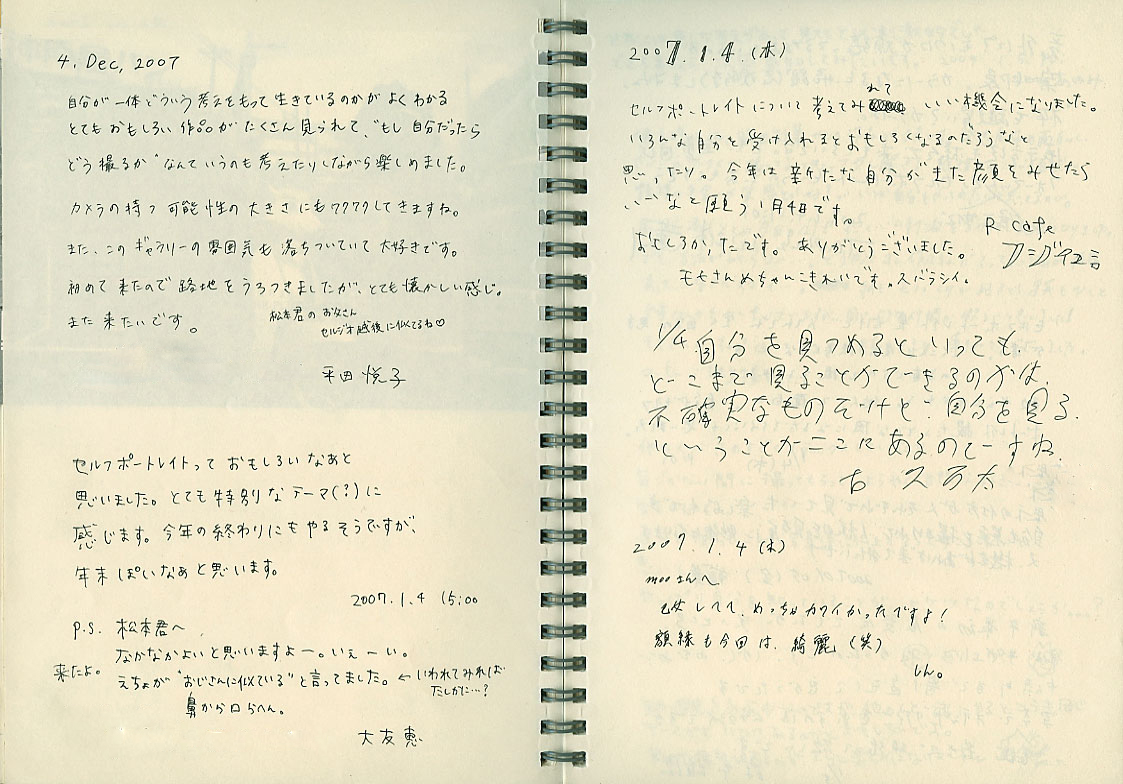 4. Dec, 2007
自分が一体どういう考えをもって生きているのかがよくわかる
とてもおもしろい作品がたくさん見られて、"もし自分だったら
どう撮るか"なんていうのも考えたりしながら楽しめました。
カメラの持つ可能性の大きさにもワクワクしてきますね。
また、このギャラリーの雰囲気も落ちついていて大好きです。
初めて来たので路地をうろつきましたが、とても懐かしい感じ。
また来たいです。
松本君のお父さん
セルジオ越後に似てるね♡
平田悦子
セルフポートレイトっておもしろいなあと
思いました。とても特別なテーマ(?)に
感じます。今年の終わりにもやるそうですが、
年末ぽいなあと思います。
2007.1.4 15:00
P.S. 松本君へ
なかなかよいと思いますよー。いぇーい。
来たよ。
えちょが"おじさんに似ている"と言ってました。←いわれてみれば
たしかに…?
鼻から口らへん。
大友恵
2007.1.4.(木)
セルフポートレイトについて考えてみれて いい機会になりました。
いろんな自分を受け入れるとおもしろくなるのだろうなと
思ったり。今年は新たな自分がまた顔をみせたら
いーなと願う1月4日です。
およしろかったです。ありがとうございました。
R cafe
モモさんめちゃんこきれいです。スバラシイ。
1/4 自分を見つめるといっても、
どこまで見ることができるのかは、
不確実なものだけど、自分を見る、
ということがここにあるのですね。
2007.1.4(木)
mooさんへ
してて、めっちゃカワイかったですよ!
額縁も今回は、綺麗(笑)
しん。